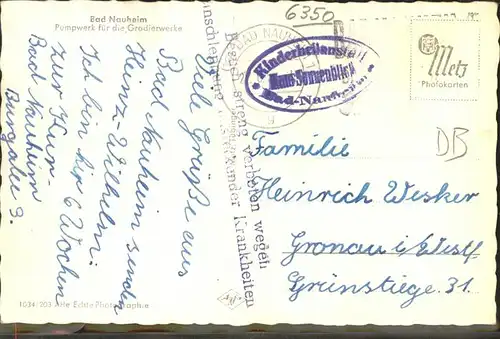 Bad Nauheim
Pumpwerk für die Gradierwerke
Viele Grüße aus
Bad Nauheim sendet
Heinz-Wilhelm.
Ich bin hier 6 Wochen
zur Kur.
Bad Nauheim
Burgallee 9.
1034/203 Echte Photographie
Besuch streng verboten wegen
ansteckender Krankheiten
6350
BAD NAUHEIM
Kinderheilanstalt
Haus Sonnenblick
Bad-Nauheim
Metz
Photokarten
DB
Familie
Heinrich Wesker
Gronau i/Westf
Grünstiege 31.